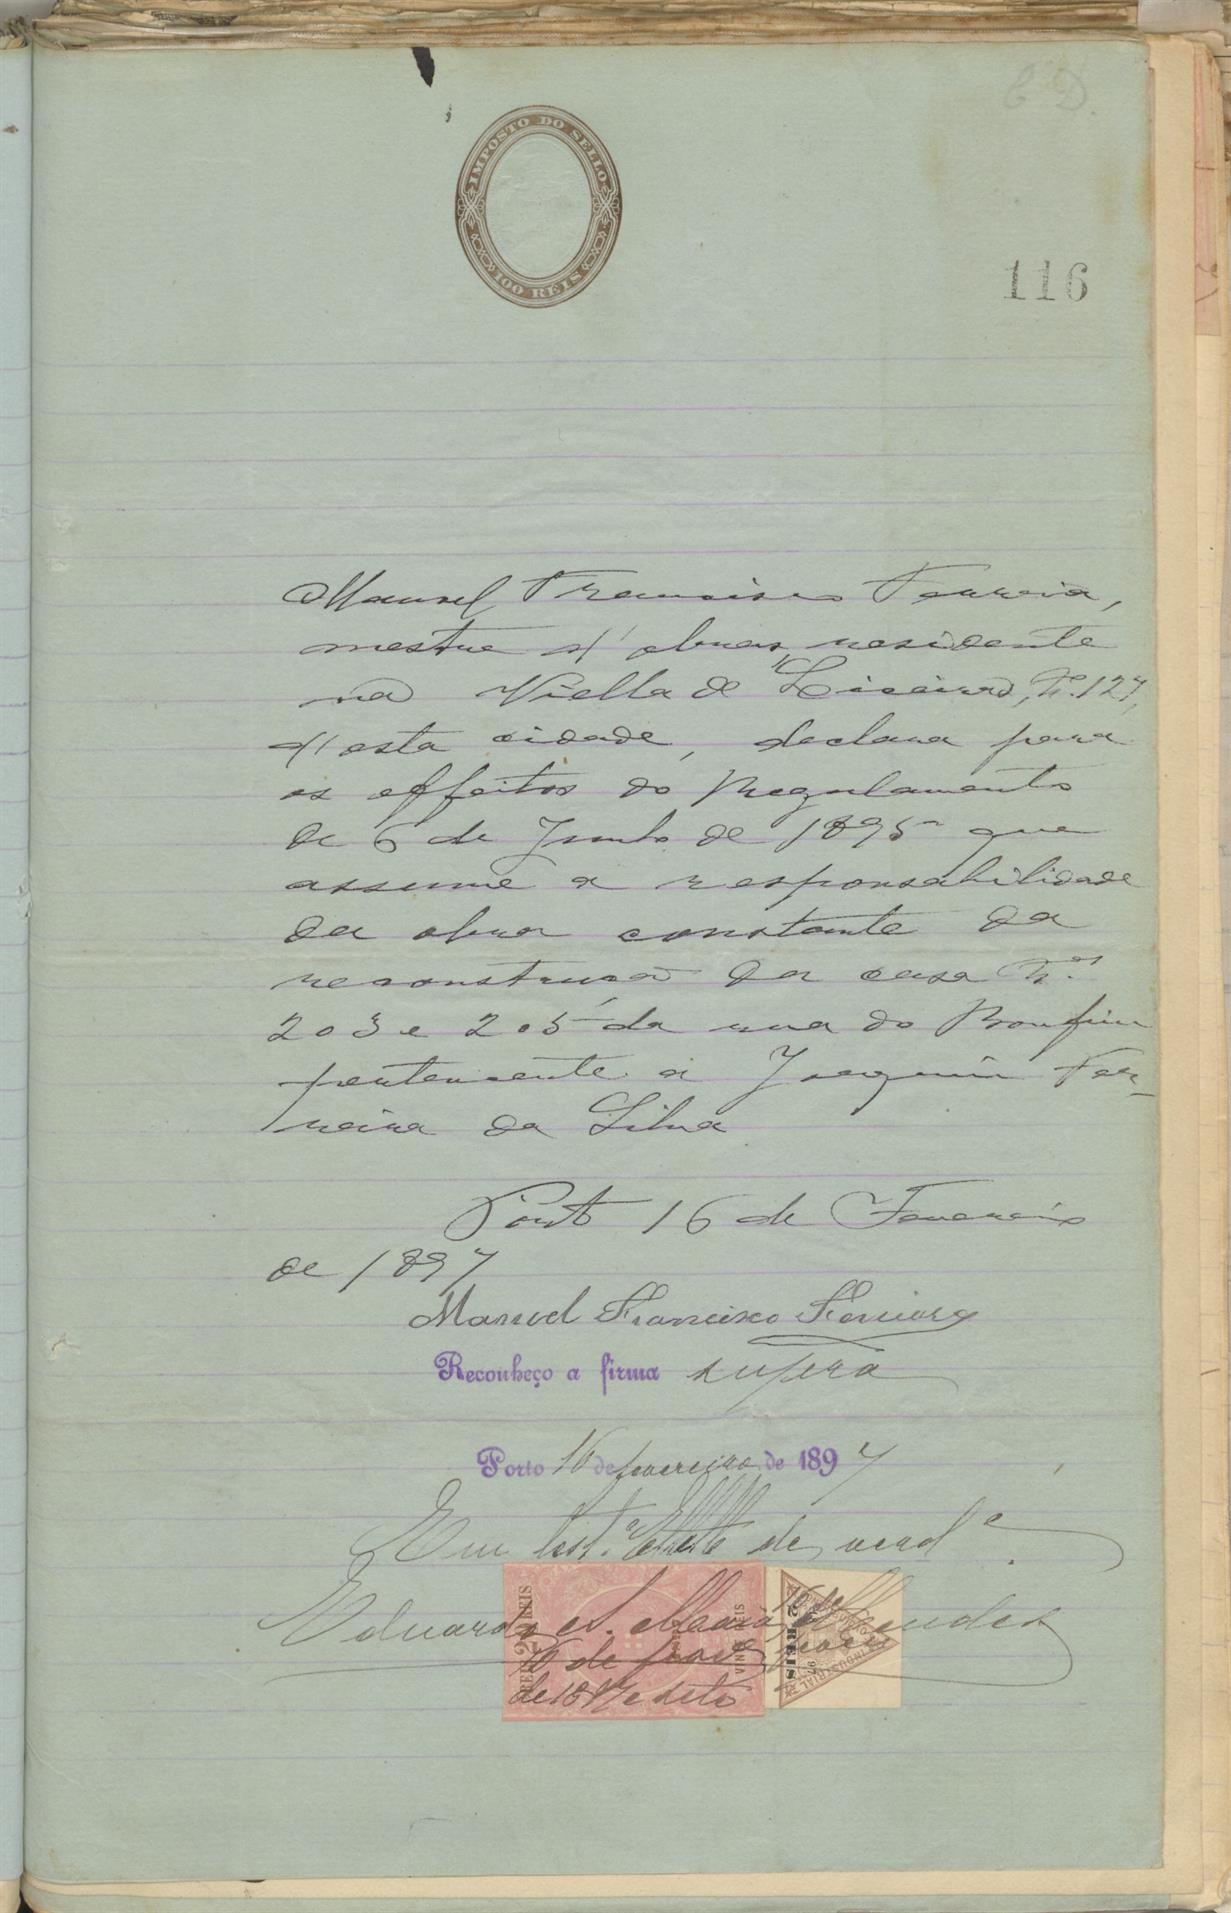 E D.
IMPOSTO DO SELLO
100 REIS
116
Manuel Francisco Ferreira,
mestre d'obras, residente
na Viella de N.º 127,
d'esta cidade, declara para
os effeitos do Regulamento
de 6 de Junho de 1895 que
assume a responsabilidade
da obra constante da
reconstrucão da casa N.os
203 e 205 da rua do Bomfim
pertencente a Joaquim Fer-
reira da Silva
Porto 16 de Fevereiro
de 1897
Manoel Francisco Ferreira
Reconheço a firma supra
Porto 16 de fevereiro de 1897
Em test.º de verd.e
Eduardo A. Maia Mendes
16 de fevereiro
de 1897 e sete
REIS 20 REIS
VINTE REIS
2 REIS
INDUSTRIAL
97